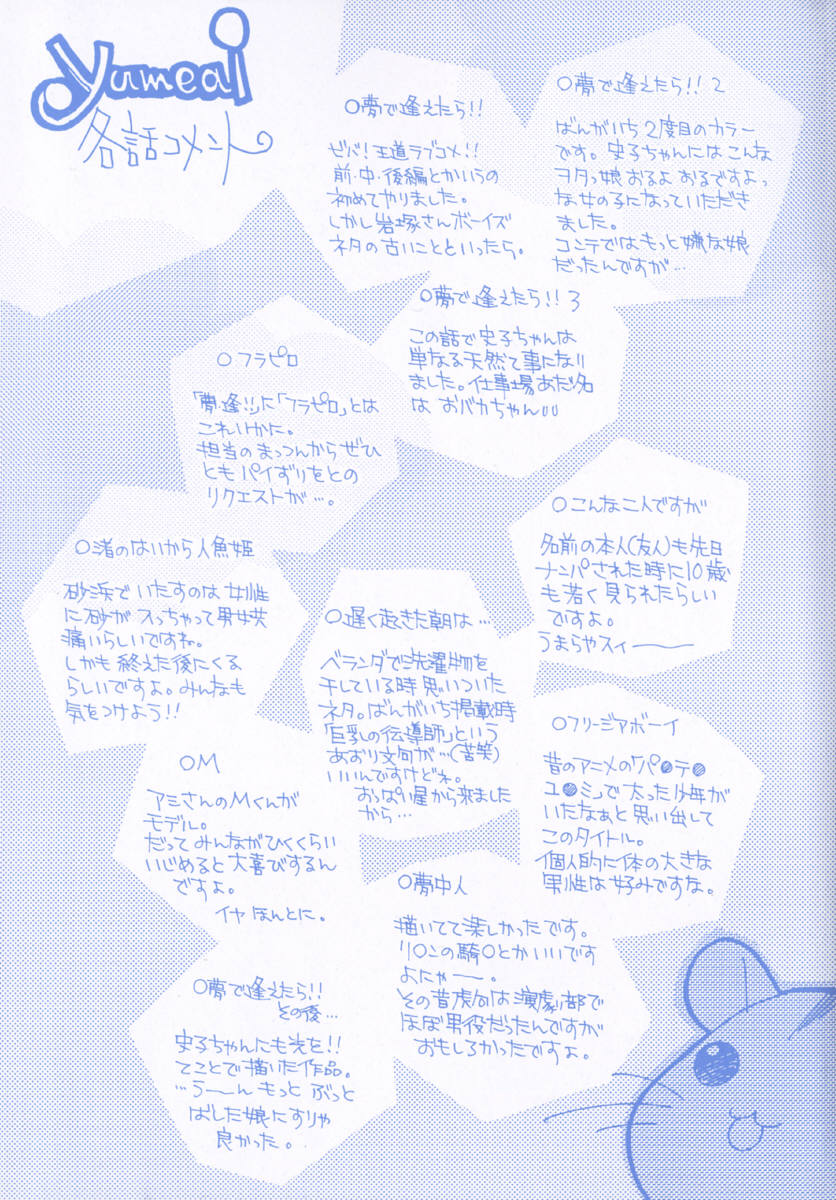 yumeai
各話コメント
○夢で逢えたら!!
ゼバ!王道ラブコメ!!
前・中・後編とかいうの
初めてやりました。
しかし岩塚さんボーイズ
ネタの古いことといったら。
○夢で逢えたら!! 2
ばんがいち2度目のカラー
です。史子ちゃんにはこんな
ヲタっ娘おるよおるですよっ
な女の子になっていただき
ました。
コンテではもっと嫌な娘
だったんですが…
○夢で逢えたら!! 3
この話で史子ちゃんは
単なる天然て事になり
ました。仕事場あだ名
は おバカちゃん
○フラピロ
「夢・逢!!」に「フラピロ」とは
これいかに。
担当のまっつんからぜひ
ともパイずりをとの
リクエストが…。
○こんな二人ですが
名前の本人(友人)も先日
ナンパされた時に10歳
も若く見られたらしい
ですよ。
うまらやスィ――
○渚のはいから人魚姫
砂浜でいたすのは女性
に砂が入っちゃって男女共
痛いらしいですね。
しかも終えた後にくる
らしいですよ。みんなも
気をつけよう!!
○遅く起きた朝は…
ベランダで洗濯物を
干している時思いついた
ネタ。ばんがいち掲載時
「巨乳の伝導師」という
あおり文句が…(苦笑)
いいんですけどね。
おっぱい屋から来ました
から…
○フリージアボーイ
昔のアニメの「パ●テ●
ユ●ミ」で太った少年が
いたなぁと思い出して
このタイトル。
個人的に体の大きな
男性は好みですな。
○M
アミさんのMくんが
モデル。
だってみんながひくくらい
いじめると大喜びするん
ですよ。
イヤ ほんとに。
○夢中人
描いてて楽しかったです。
リ○ンの騎○とかいいです
よにゃー。
その昔虎向は演劇部で
ほぼ男役だったんですが
おもしろかったですよ。
○夢で逢えたら!!
その後…
史子ちゃんにも光を!!
てことで描いた作品。
…うーん もっと ぶっと
ばした娘にすりゃ
良かった。